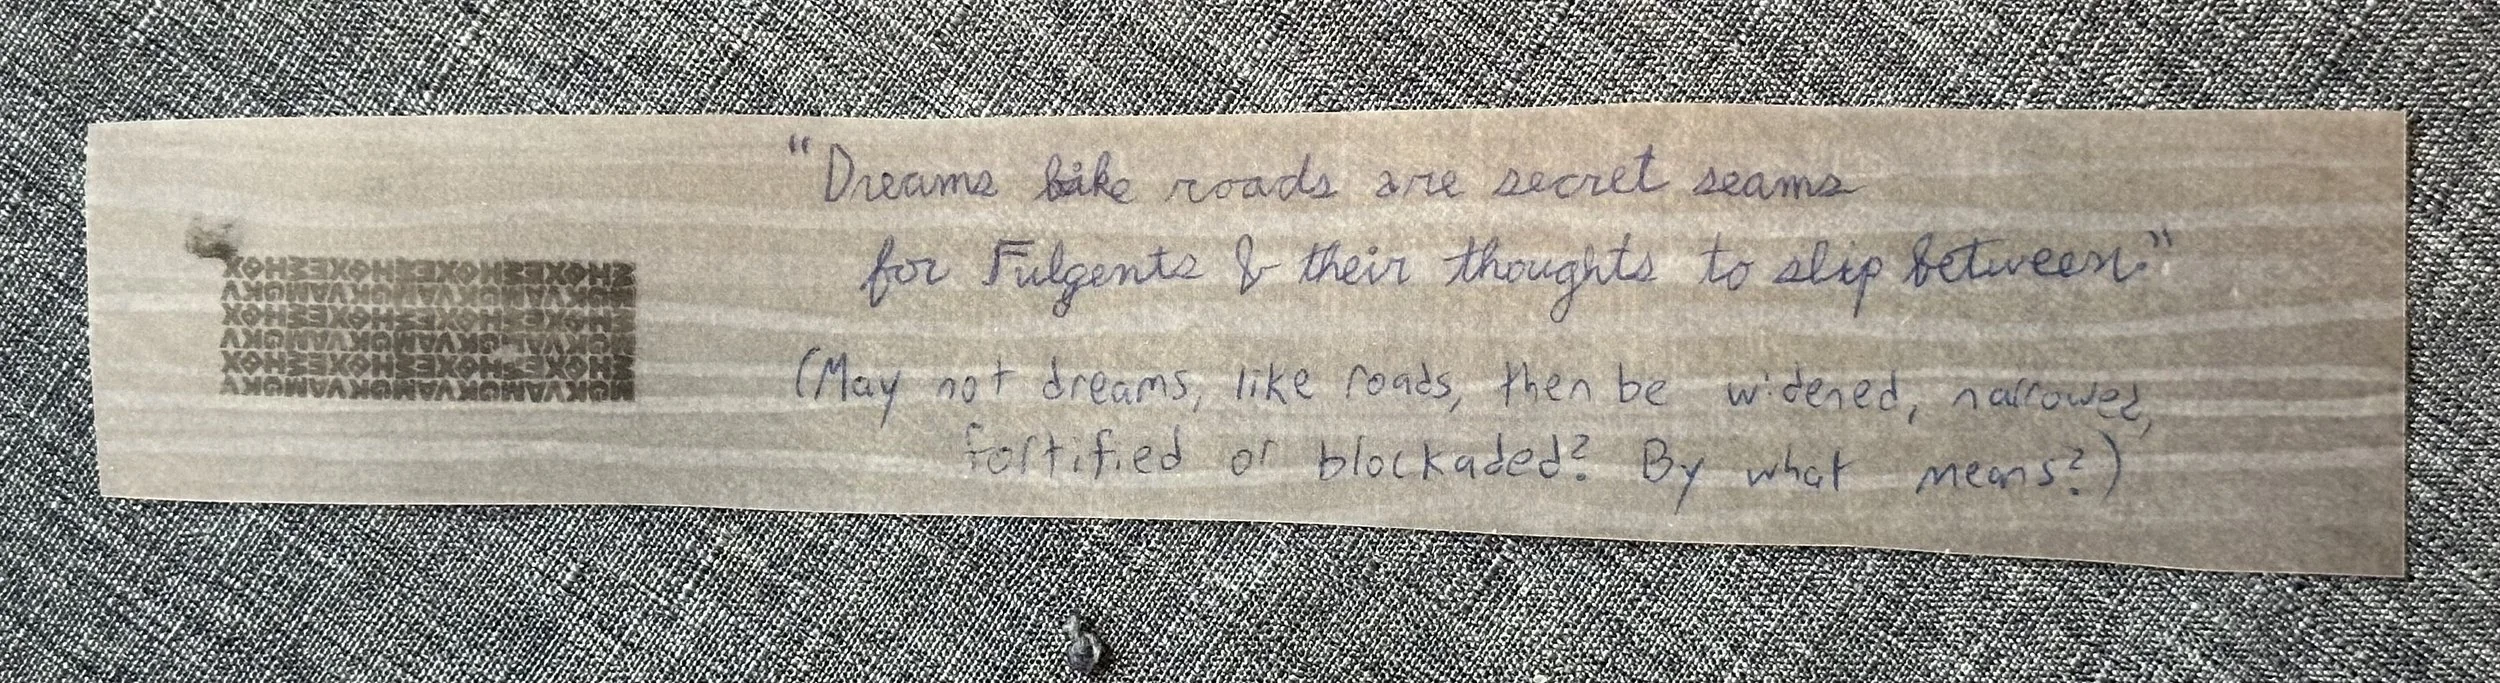 "Dreams like roads are secret seams
for Fulgents & their thoughts to slip between."
(May not dreams, like roads, then be widened, narrowed,
fortified or blockaded? By what means?)